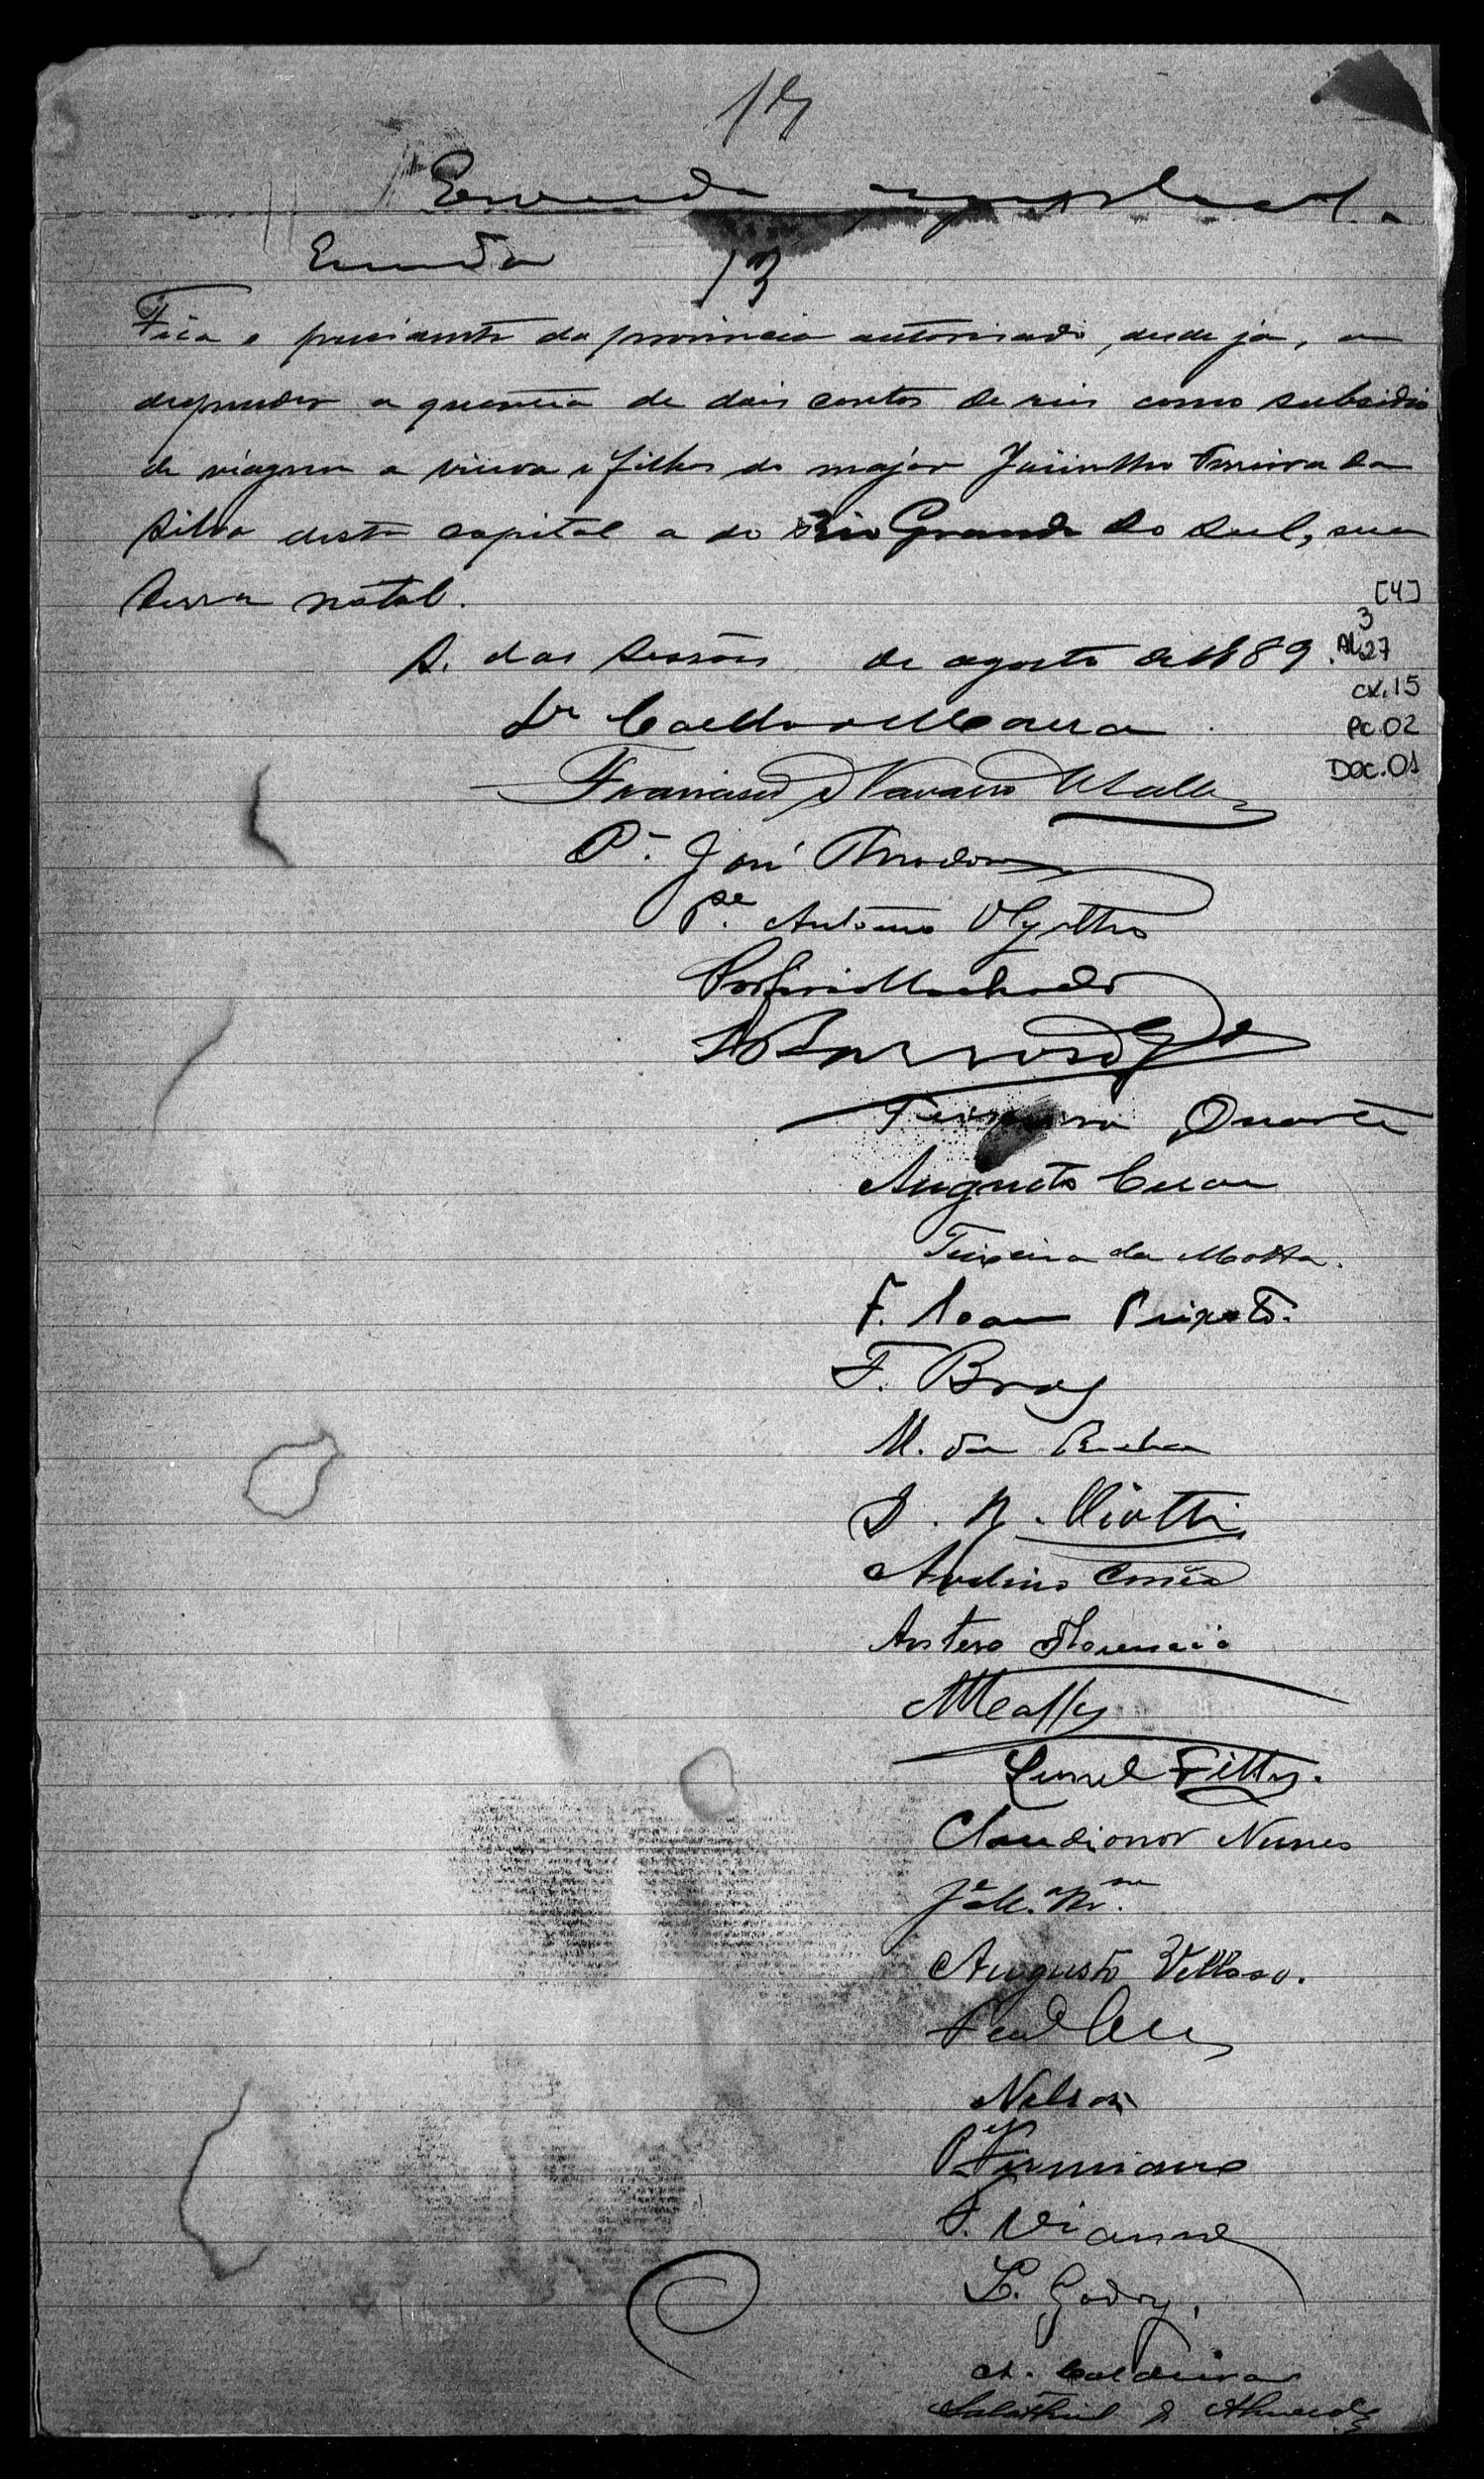 Emenda
Emenda 13
Fica o presidente da provincia autorisado, desde já, a
despender a quantia de dois contos de reis como subsidio
de viagem a viuva e filhos do major Jacintho Ferreira da
Silva desta capital a do Rio Grande do Sul, sua
terra natal.
S. das Sessões de agosto de 1889.
[4]
3
AL 27
CX. 15
PC. 02
DOC. 01
Dr Coelho e Moura
Francisco Navarro
P. José
Pe. Antonio Olyntho
Porfirio Machado
Barros
Teixeira Duarte
Augusto Cesar
Teixeira da Motta.
F. Peixoto.
F. Braz
M. da Rocha
Viotti
Avelino Corrêa
Antero Florencio
Leonel Filho.
Claudionor Nunes
Augusto Velloso.
Nelson
Pe Firmiano
F. Vianna
L. Godoy.
A. Caldeira
Salathiel de Almeida